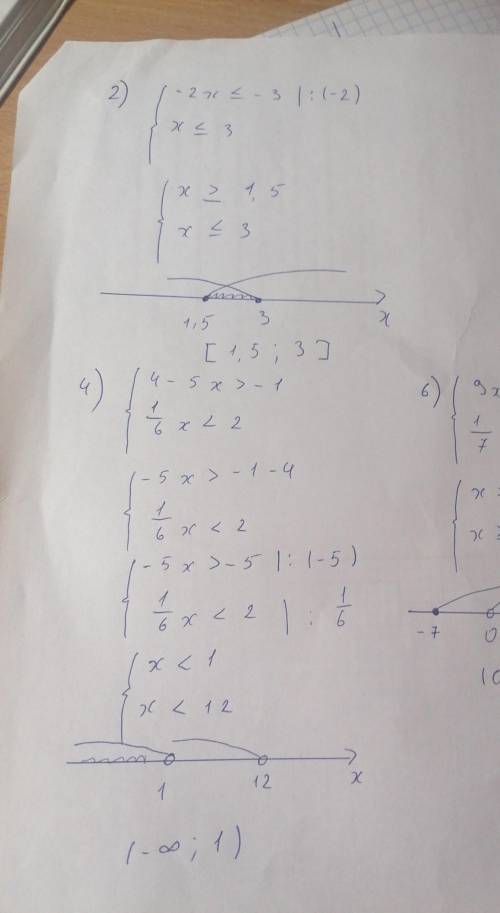 2) { -2x ≤ -3 | : (-2)
x ≤ 3
{ x ≥ 1,5
x ≤ 3
1,5 3 x
[ 1,5 ; 3 ]
4) { 4 - 5x > -1
1/6 x < 2
{ -5x > -1 -4
1/6 x < 2
{ -5x > -5 | : (-5)
1/6 x < 2 | : 1/6
{ x < 1
x < 12
1 12 x
(-∞ ; 1)
6) { 9x
1/7
{ x
x
-7 0